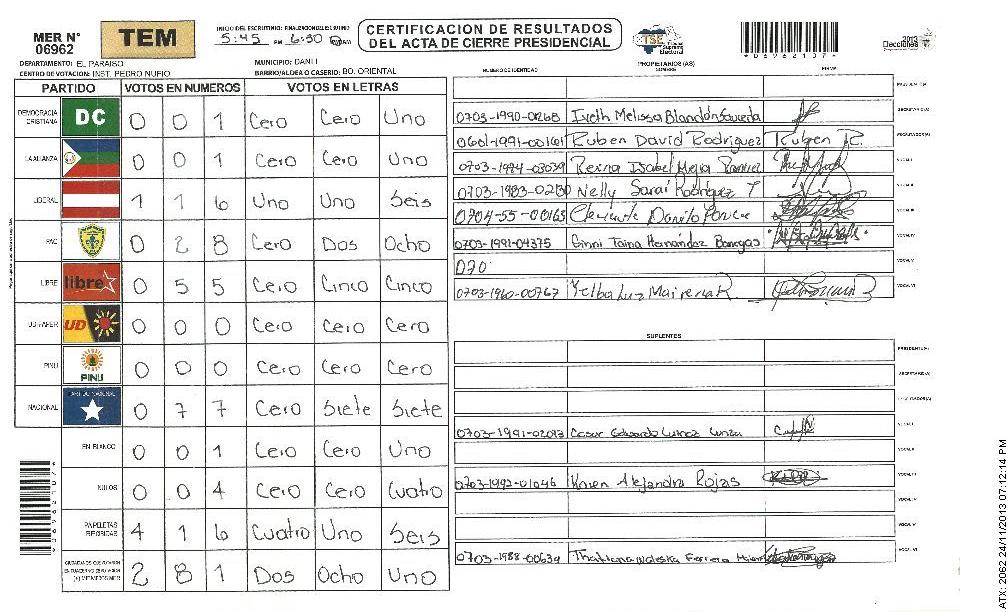 MER N° 06962
TEM
INICIO DEL ESCRUTINIO: FINALIZACION DEL ESCRUTINIO
5:45 PM 6:30
CERTIFICACION DE RESULTADOS
DEL ACTA DE CIERRE PRESIDENCIAL
TSE
Tribunal Supremo Electoral
*06962107*
2013
Elecciones
DEPARTAMENTO: EL PARAISO
MUNICIPIO: DANLI
CENTRO DE VOTACION: INST. PEDRO NUFIO
BARRIO/ALDEA O CASERIO: BO. ORIENTAL
PARTIDO VOTOS EN NUMEROS VOTOS EN LETRAS
DEMOCRACIA CRISTIANA DC 0 0 1 Cero Cero Uno
LA ALIANZA 0 0 1 Cero Cero Uno
LIBERAL 1 1 6 Uno Uno Seis
PAC 0 2 8 Cero Dos Ocho
LIBRE libre 0 5 5 Cero Cinco Cinco
UD-FAPER UD 0 0 0 Cero Cero Cero
PINU PINU 0 0 0 Cero Cero Cero
NACIONAL PARTIDO NACIONAL 0 7 7 Cero Siete Siete
EN BLANCO 0 0 1 Cero Cero Uno
NULOS 0 0 4 Cero Cero Cuatro
PAPELETAS RECIBIDAS 4 1 6 Cuatro Uno Seis
2 8 1 Dos Ocho Uno
*06962107*
NUMERO DE IDENTIDAD
PROPIETARIOS (AS)
NOMBRE
FIRMA
PRESIDENTE(A)
0703-1990-01268 Iveth Melissa Blandón SECRETARIO(A)
0601-1991-00161 Ruben David Rodriguez Ruben R. ESCRUTADOR(A)
0703-1984-03039 Reina Isabel Mejia VOCAL I
0703-1983-0280 Nelly Sarai Rodriguez T. VOCAL II
0704-55-00163 Clemente Danilo Ponce VOCAL III
0703-1991-04375 Ginni Taina Hernández Banegas VOCAL IV
070 VOCAL V
0703-1960-00767 Yelba Luz Mairena R. VOCAL VI
SUPLENTES
PRESIDENTE(A)
SECRETARIO(A)
ESCRUTADOR(A)
0703-1991-02093 Cesar Eduardo VOCAL I
VOCAL II
0703-1992-01046 Karen Alejandra Rojas VOCAL III
VOCAL IV
VOCAL V
0703-1988-00634 VOCAL VI
ATX: 2062 24/11/2013 07:12:14 PM